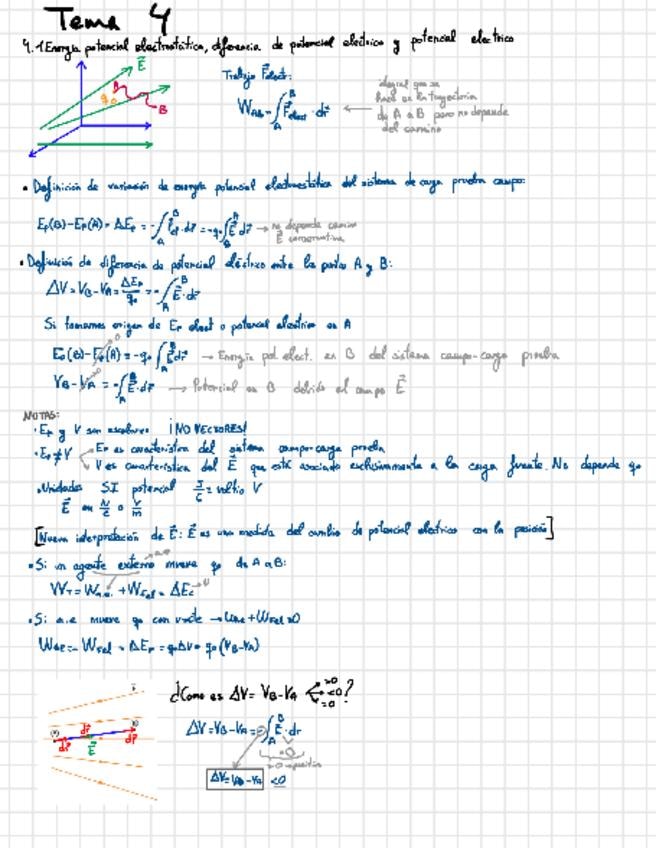 Tema 4
4.1 Energía potencial electrostática, diferencia de potencial eléctrico y potencial eléctrico
E⃗
A
q₀
B
Trabajo F⃗elect:
W_AB = ∫_A^B F⃗elect · dr⃗
integral que se
hace en la trayectoria
de A a B pero no depende
del camino
• Definición de variación de energía potencial electrostática del sistema de carga prueba campo:
Ep(B)-Ep(A) = ΔEp = -∫_A^B F⃗el · dr⃗ = -q₀∫_A^B E⃗ dr⃗ → no depende camino
E⃗ conservativa
• Definición de diferencia de potencial eléctrico entre los puntos A y B:
ΔV = V_B - V_A = ΔEp/q₀ = -∫_A^B E⃗ · dr⃗
Si tomamos origen de Ep elect o potencial eléctrico en A
Ep(B) - Ep(A) = -q₀ ∫_A^B E⃗ dr⃗ → Energía pot. elect. en B del sistema campo-carga prueba
V_B - V_A = -∫_A^B E⃗ · dr⃗ → Potencial en B debido al campo E⃗
NOTAS:
• Ep y V son escalares ¡NO VECTORES!
• Ep ≠ V
Ep es característica del sistema campo-carga prueba
V es característica del E⃗ que está asociado exclusivamente a la carga fuente. No depende q₀
• Unidades SI potencial J/C = voltio V
E⃗ en N/C o V/m
[Nueva interpretación de E⃗: E⃗ es una medida del cambio de potencial eléctrico con la posición]
• Si un agente externo mueve q₀ de A a B:
W_T = W_a.e. + W_Fel = ΔEc
• Si a.e mueve q₀ con v=cte → Wae + W_Fel = 0
Wae = -W_Fel = ΔEp = q₀ΔV = q₀(V_B-V_A)
¿Como es ΔV = V_B - V_A >0 <0 =0 ?
dr⃗
dr⃗
E⃗
dr⃗
ΔV = V_B - V_A = -∫_A^B E⃗ · dr
>0
>0 → positivo
ΔV = V_B - V_A <0